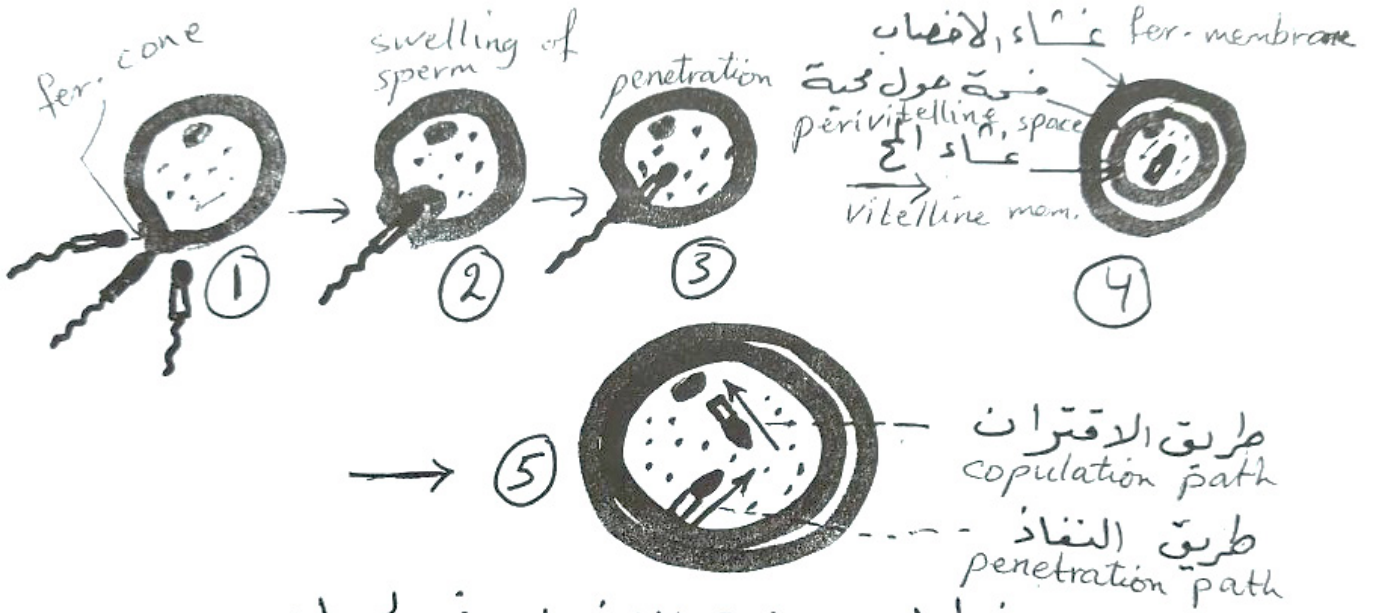 fer. cone
swelling of
sperm
penetration
غشاء الاخصاب fer. membrane
فسحة حول محية
perivitelline space
غشاء المح
vitelline mem.
1
2
3
4
5
طريق الاقتران
copulation path
طريق النفاذ
penetration path